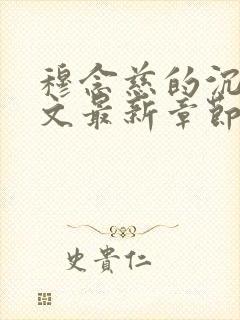 穆念慈的沉
文最新章節
史貴仁